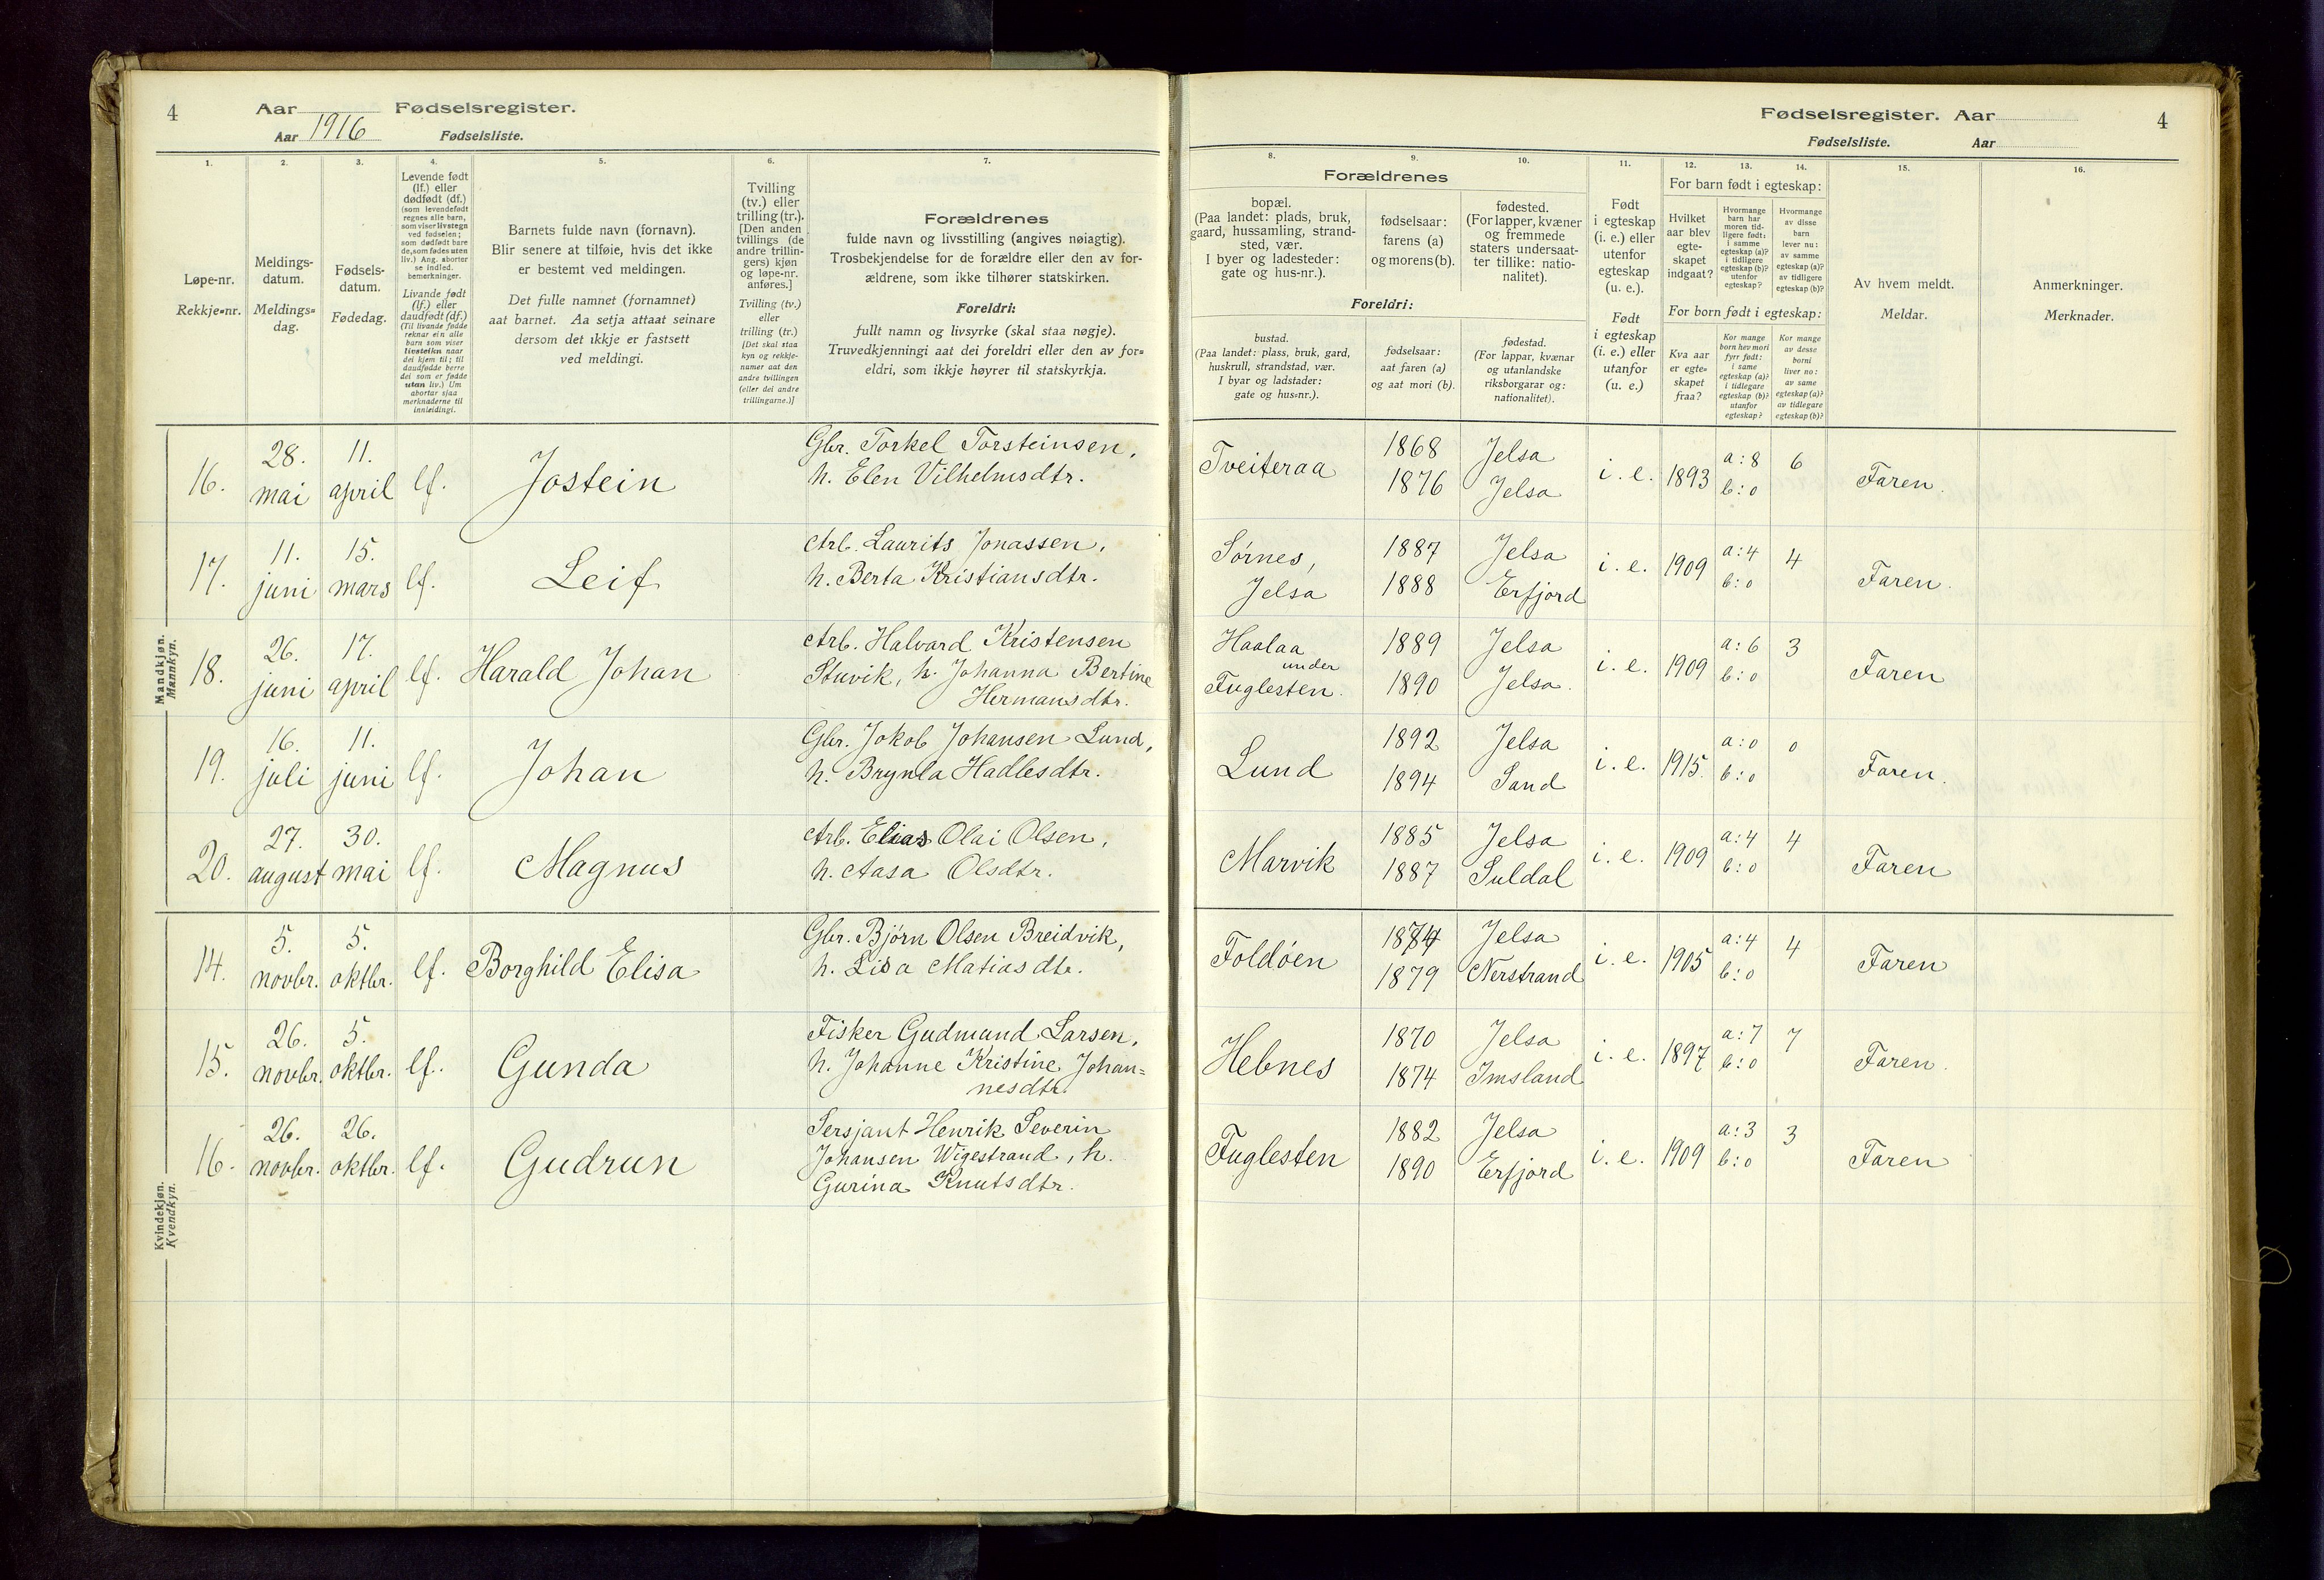 4
Aar Fødselsregister.
Aar 1916 Fødselsliste.
Fødselsregister. Aar
4
Fødselsliste. Aar
1. 2. 3. 4. 5. 6. 7.
8. 9. 10. 11. 12. 13. 14. 15. 16.
Løpe-nr.
Rekkje-nr.
Meldings-
datum.
Meldings-
dag.
Fødsels-
datum.
Fødedag.
Levende født
(lf.) eller
dødfødt (df.)
(som levendefødt
regnes alle barn,
som viser livstegn
ved fødselen;
som dødfødt bare
de, som fødes uten
liv.) Ang. aborter
se indled.
bemerkninger.
Livande født
(lf.) eller
daudfødt (df.)
(Til livande fødde
reknar ein alle
barn som viser
livsteikn naar
dei kjem til; til
daudfødde berre
dei som er fødde
utan liv.) Um
abortar sjaa
merknaderne til
innleidingi.
Barnets fulde navn (fornavn).
Blir senere at tilføie, hvis det ikke
er bestemt ved meldingen.
Det fulle namnet (fornamnet)
aat barnet. Aa setja attaat seinare
dersom det ikkje er fastsett
ved meldingi.
Tvilling
(tv.) eller
trilling (tr.).
[Den anden
tvillings (de
andre trillin-
gers) kjøn
og løpe-nr.
anføres.]
Tvilling (tv.)
eller
trilling (tr.)
[Det skal staa
kyn og rekkje-
namer aat den
andre tvillingen
(eller dei andre
trillingarne.)]
Forældrenes
fulde navn og livsstilling (angives nøiagtig).
Trosbekjendelse for de forældre eller den av for-
ældrene, som ikke tilhører statskirken.
Foreldri:
fullt namn og livsyrke (skal staa nøgje).
Truvedkjenningi aat dei foreldri eller den av for-
eldri, som ikkje høyrer til statskyrkja.
Forældrenes
bopæl.
(Paa landet: plads, bruk,
gaard, hussamling, strand-
sted, vær.
I byer og ladesteder:
gate og hus-nr.).
fødselsaar:
farens (a)
og morens (b).
fødested.
(For lapper, kvæner
og fremmede
staters undersaat-
ter tillike: natio-
nalitet).
Foreldri:
bustad.
(Paa landet: plass, bruk, gard,
huskrull, strandstad, vær.
I byar og ladstader:
gate og hus-nr.).
fødselsaar:
aat faren (a)
og aat mori (b).
fødestad.
(For lappar, kvænar
og utanlandske
riksborgarar og:
nationalitet).
Født
i egteskap
(i. e.) eller
utenfor
egteskap
(u. e.).
Født
i egteskap
(i. e.) eller
utanfor
(u. e.)
For barn født i egteskap:
Hvilket
aar blev
egte-
skapet
indgaat?
Hvormange
barn har
moren tid-
ligere født:
i samme
egteskap (a)?
i tidligere
egteskap (b)?
utenfor
egteskap?
Hvormange
av disse
barn
lever nu:
av samme
egteskap (a)?
av tidligere
egteskap (b)?
For born født i egteskap:
Kva aar
er egte-
skapet
fraa?
Kor mange
born hev mori
fyrr født:
i same
egteskap (a)?
i tidlegare
egteskap (b)?
utanfor
egteskap?
Kor mange
av desse
borni
liver no:
av same
egteskap (a)?
av tidlegare
egteskap (b)?
Av hvem meldt.
Meldar.
Anmerkninger.
Merknader.
Mandkjøn.
Mannkyn.
16. 28. mai 11. april lf. Jostein
Gbr. Torkel Torsteinsen,
h. Elen Vilhelmsdtr.
Tveiteraa 1868 Jelsa i. e. 1893 a: 8 6 Faren.
1876 Jelsa b: 0
17. 11. juni 15. mars lf. Leif
Arb. Laurits Jonassen,
h. Berta Kristiansdtr.
Sørnes, 1887 Jelsa i. e. 1909 a: 4 4 Faren.
Jelsa 1888 Erfjord b: 0
18. 26. juni 17. april lf. Harald Johan
Arb. Halvard Kristensen
Stuvik, h. Johanna Bertine
Hermansdtr.
Haalaa 1889 Jelsa i. e. 1909 a: 6 3 Faren
under
Fuglesten. 1890 Jelsa. b: 0
19. 16. juli 11. juni lf. Johan
Gbr. Jokob Johansen Lund,
h. Brynla Hadlesdtr.
Lund 1892 Jelsa i. e. 1915. a: 0 0 Faren.
1894 Sand b: 0
20. 27. august 30. mai lf. Magnus
Arb. Elias Olai Olsen,
h. Aasa Olsdtr.
Marvik 1885 Jelsa i. e. 1909 a: 4 4 Faren
1887 Suldal b: 0
Kvindekjøn.
Kvendkyn.
14. 5. novbr. 5. oktbr. lf. Borghild Elisa
Gbr. Bjørn Olsen Breidvik,
h. Lisa Matiasdtr.
Foldøen 1874 Jelsa i. e. 1905 a: 4 4 Faren
1879 Nerstrand b: 0
15. 26. novbr. 5. oktbr. lf. Gunda
Fisker Gudmund Larsen,
h. Johanne Kristine Johan=
nesdtr.
Hebnes 1870 Jelsa i. e. 1897 a: 7 7 Faren.
1874 Imsland b: 0
16. 26. novbr. 26. oktbr. lf. Gudrun
Sersjant Henrik Severin
Johansen Wigestrand, h.
Gurina Knutsdtr.
Fuglesten 1882 Jelsa i. e. 1909 a: 3 3 Faren
1890 Erfjord b: 0